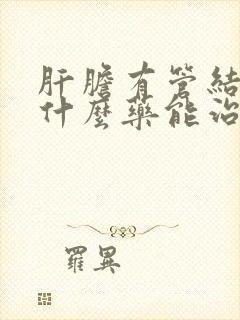 肝膽有管結
什麼藥能治
羅異